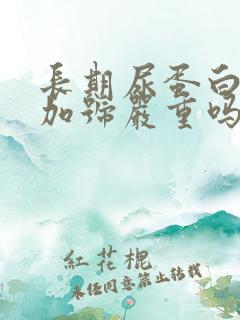 長期尿蛋白
加號嚴重嗎
紅花棍
未经同意禁止转载